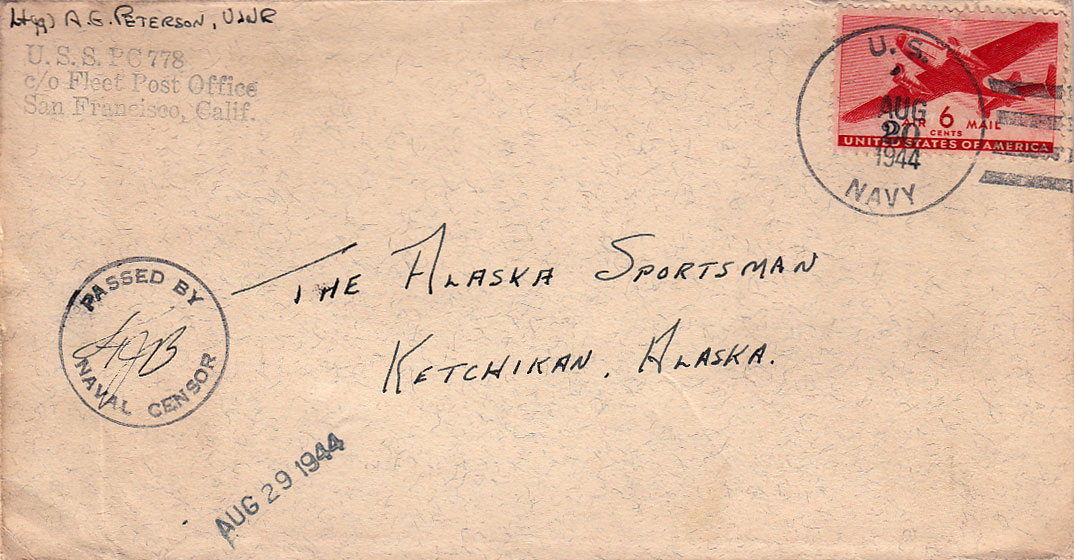 Lt(jg) A. E. PETERSON, USNR
U. S. S. PC 778
c/o Fleet Post Office
San Francisco, Calif.
U. S.
AUG
20
1944
NAVY
AIR 6 MAIL
CENTS
UNITED STATES OF AMERICA
THE ALASKA SPORTSMAN
KETCHIKAN, ALASKA.
PASSED BY
NAVAL CENSOR
AUG 29 1944